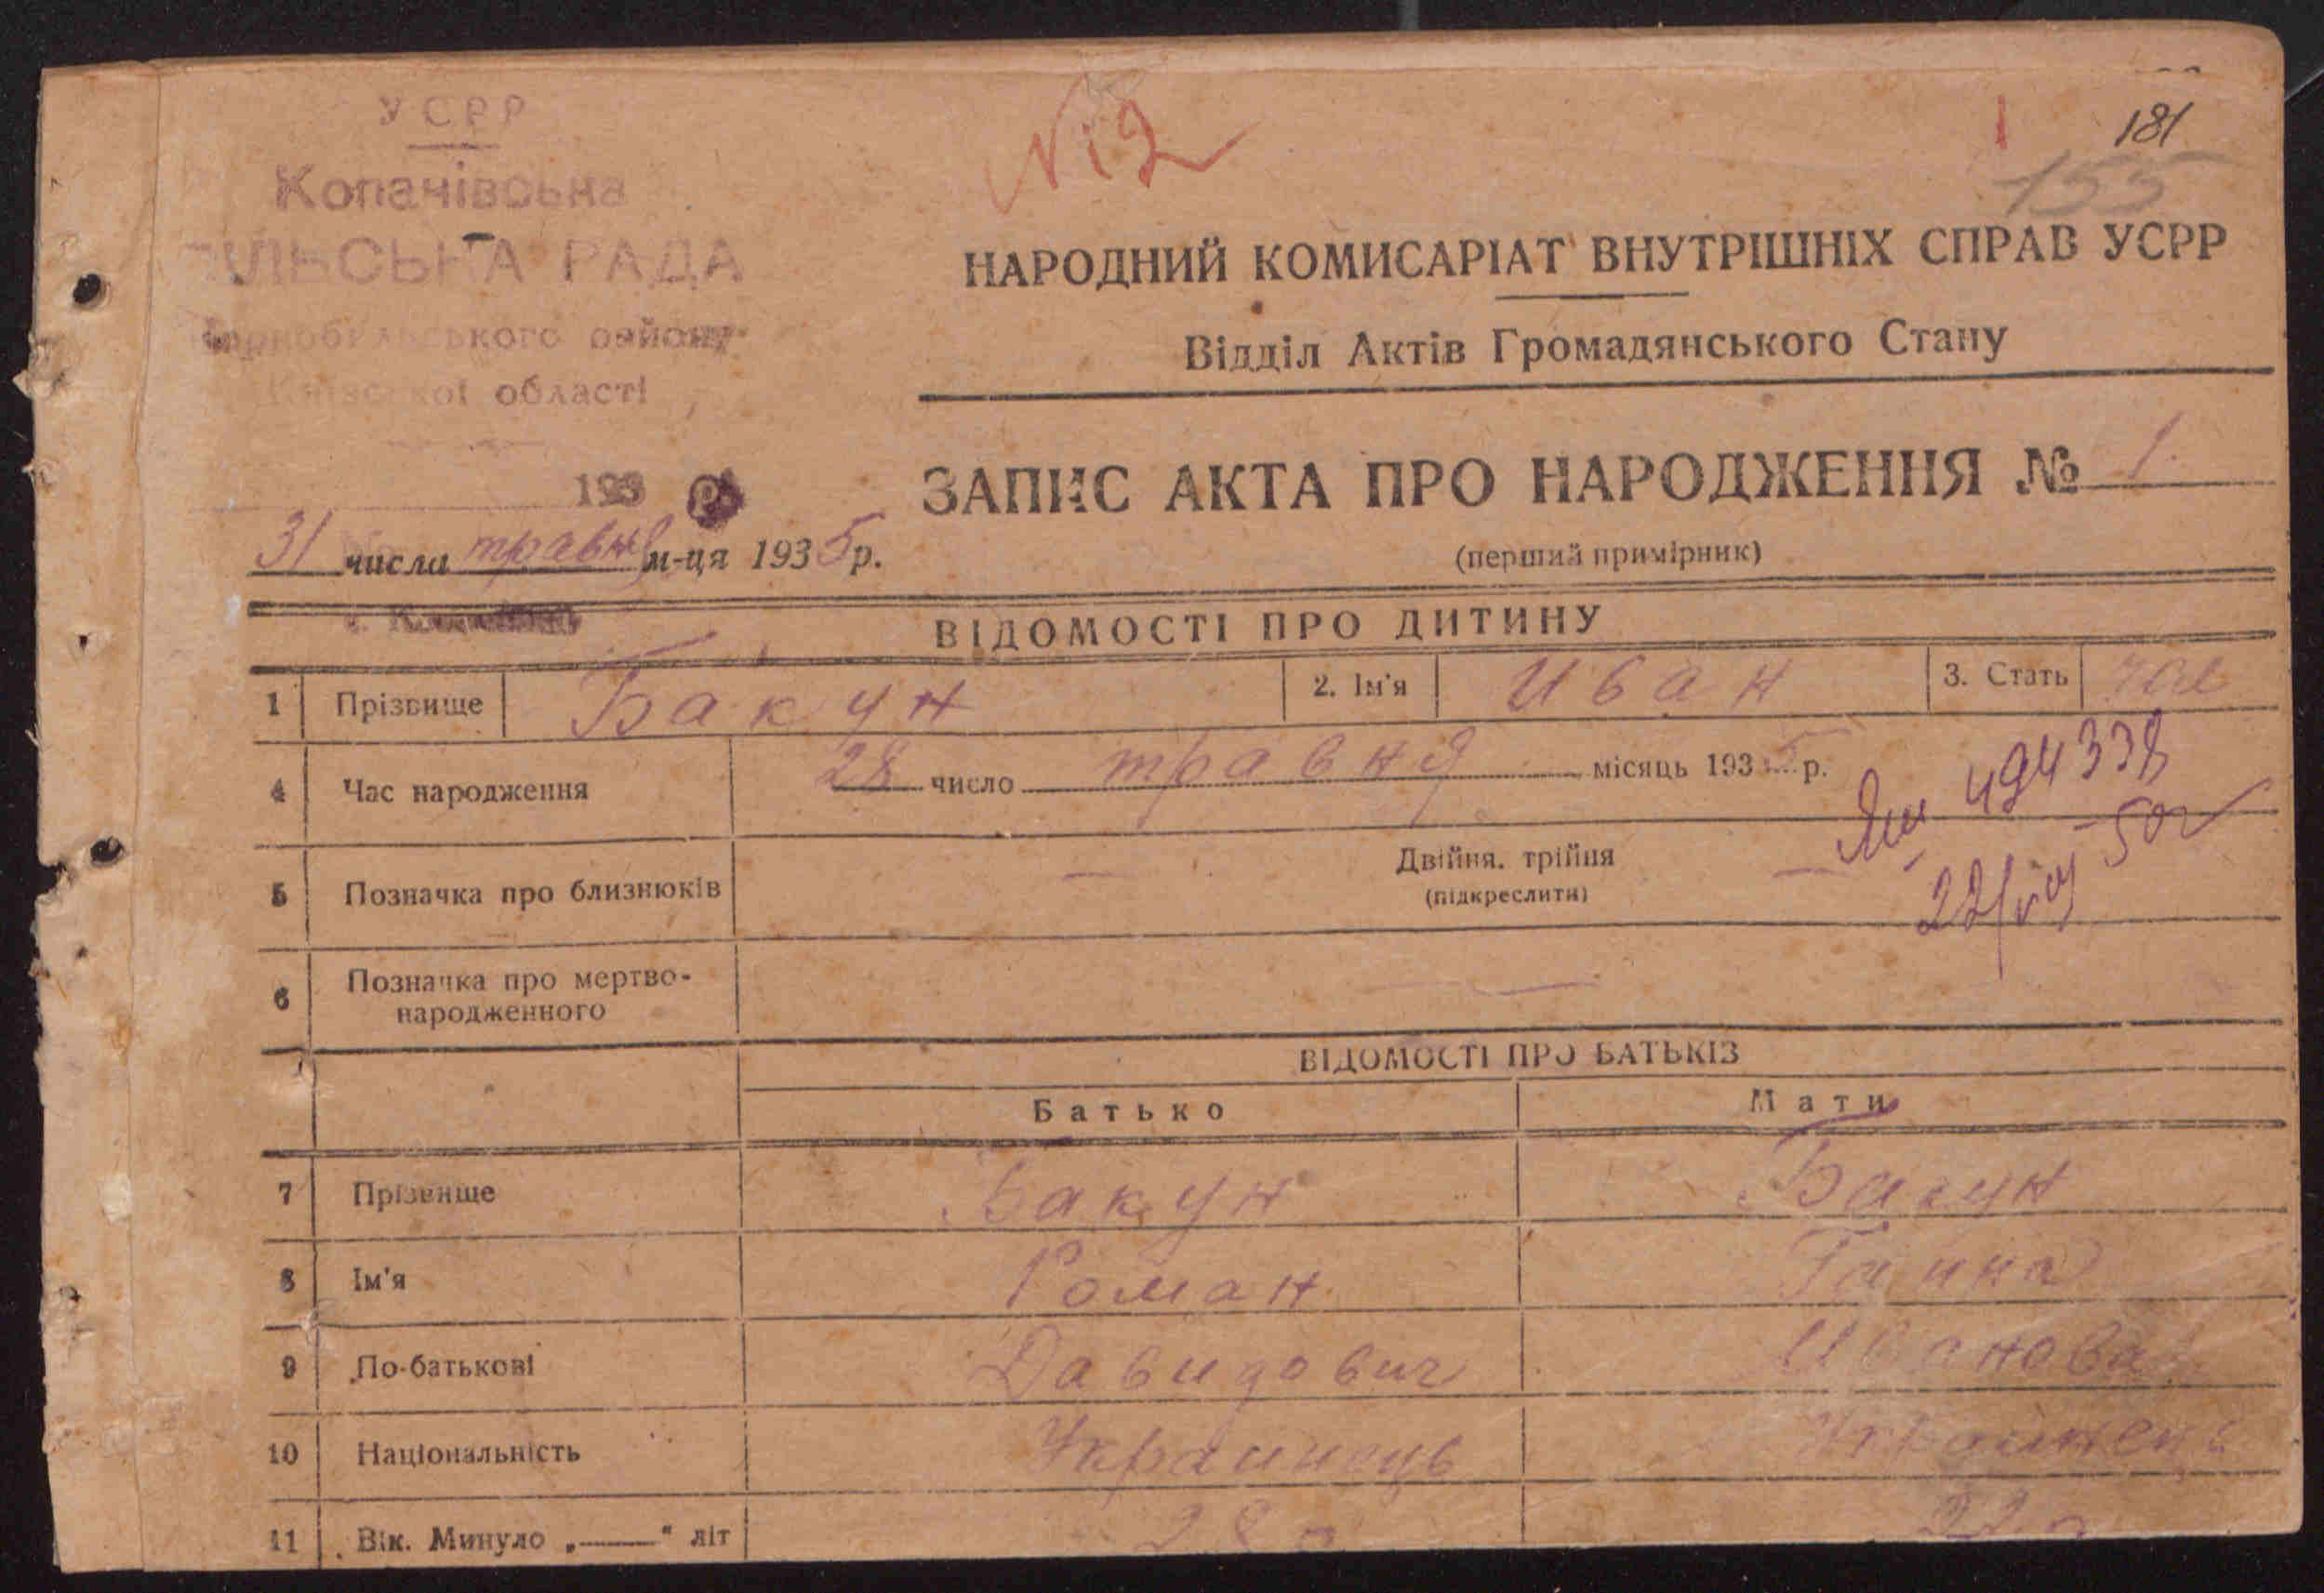 УСРР
Копачівська
СІЛЬСЬКА РАДА
Чорнобильського району
Київської області
193
№ 2
1
181
155
НАРОДНИЙ КОМИСАРІАТ ВНУТРІШНІХ СПРАВ УСРР
Відділ Актів Громадянського Стану
ЗАПИС АКТА ПРО НАРОДЖЕННЯ № 1
31 числа травня м-ця 1935 р.
(перший примірник)
ВІДОМОСТІ ПРО ДИТИНУ
1 Прізвище Бакун 2. Ім'я Иван 3. Стать чол
4 Час народження 28 число травня місяць 1935 р.
494338
5 Позначка про близнюків — Двійня. трійня —
(підкреслити)
22/VIII 50г
6 Позначка про мертво-
народженного —
ВІДОМОСТІ ПРО БАТЬКІВ
Батько Мати
7 Прізвище Бакун Бакун
8 Ім'я Роман Ганна
9 По-батькові Давидович Иванова
10 Національність Украинець
11 Вік. Минуло „——" літ 28 22